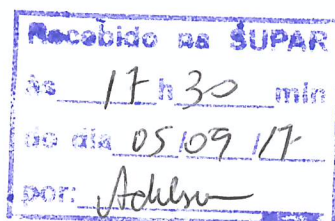 Recebido na SUPAR
às 17 h 30 min
do dia 05/09/17
por: